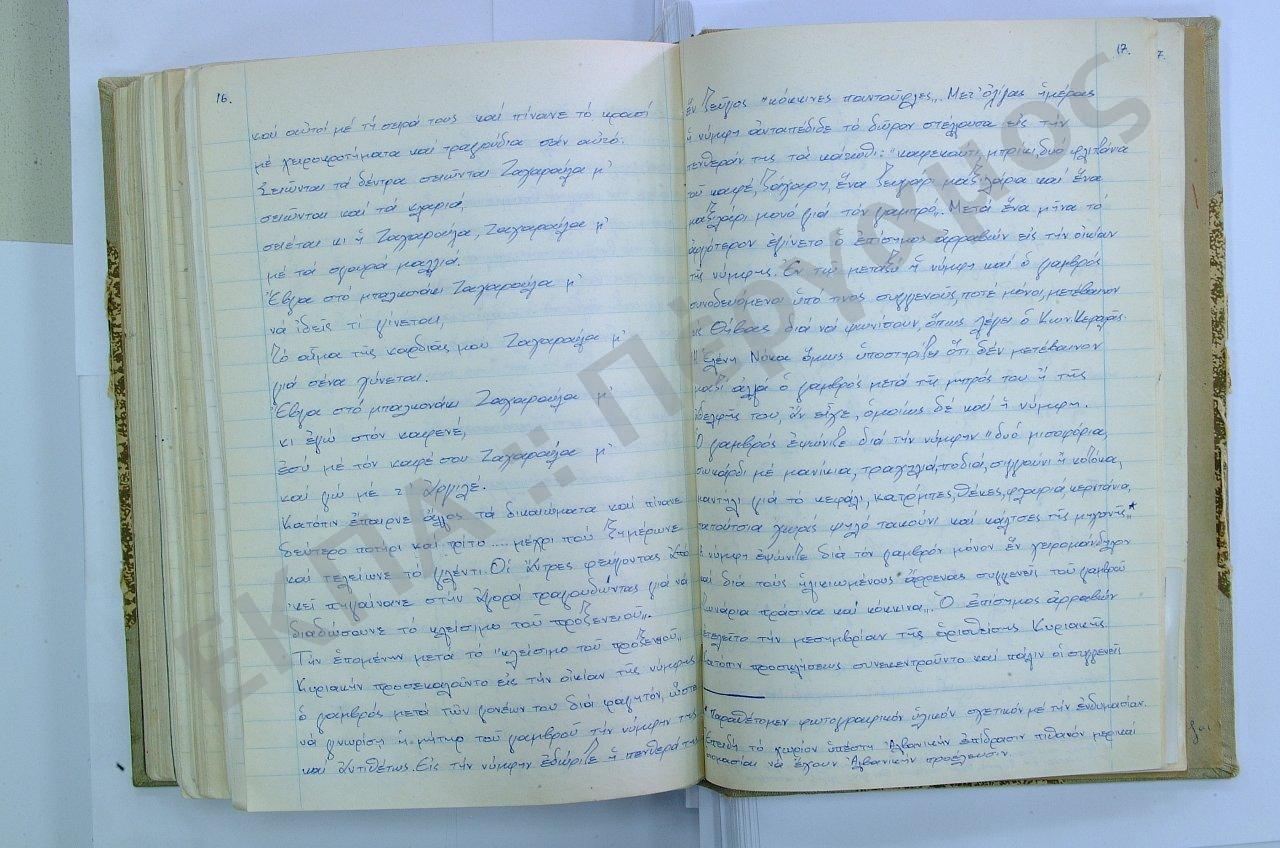 16.
καί αὐτοί μέ τή σειρά τους καί πίνανε τό κρασί
μέ χειροκροτήματα καί τραγούδια σάν αὐτό:
Σειῶνται τά δέντρα σειῶνται Ζαχαρούλα μ'
σειῶνται καί τά κλαριά,
σειέται κι ἡ Ζαχαρούλα, Ζαχαρούλα μ'
μέ τά σγουρά μαλλιά.
Ἔβγα στό μπαλκονάκι Ζαχαρούλα μ'
νά ἰδεῖς τί γίνεται,
Τό αἷμα τῆς καρδιᾶς μου Ζαχαρούλα μ'
γιά σένα χύνεται.
Ἔβγα στό μπαλκονάκι Ζαχαρούλα μ'
κι ἐγώ στόν καφενέ,
ἐσύ μέ τόν καφέ σου Ζαχαρούλα μ'
καί γώ μέ τ' ἀργιλέ.
Κατόπιν ἔπαιρνε ἄλλος τά δικαιώματα καί πίνανε
δεύτερο ποτήρι καί τρίτο .... μέχρι πού ξημέρωνε
καί τελείωνε τό γλέντι. Οἱ ἄντρες φεύγοντας ἀπό
'κεῖ πηγαίνανε στήν ἀγορά τραγουδώντας γιά νά
διαδώσουνε τό κλείσιμο τοῦ προξενειοῦ".
Τήν ἑπομένην μετά τό "κλείσιμο τοῦ προξενιοῦ"
Κυριακήν προσεκαλοῦντο εἰς τήν οἰκίαν τῆς νύμφης
ὁ γαμβρός μετά τῶν γονέων του διά φαγητόν, ὥστε
νά γνωρίση ἡ μήτηρ τοῦ γαμβροῦ τήν νύμφην της
καί ἀντιθέτως. Εἰς τήν νύμφην ἐδώριζε ἡ πενθερά της
17.
7.
ἕν ζεῦγος "κόκκινες παντοῦφλες". Μετ' ὀλίγας ἡμέρας
ἡ νύμφη ἀνταπέδιδε τό δῶρον στέλλουσα εἰς τήν
πενθεράν της τά κάτωθι: "καφεκούτι, μπρίκι, δυό φλιτζάνια
τοῦ καφέ, ζάχαρη, ἕνα ζευγάρι μαξιλάρια καί ἕνα
μαξιλάρι μονό γιά τόν γαμπρό". Μετά ἕνα μῆνα τό
ἀργότερον ἐγίνετο ὁ ἐπίσημος ἀρραβών εἰς τήν οἰκίαν
τῆς νύμφης. Ἐν τῷ μεταξύ ἡ νύμφη καί ὁ γαμβρός
συνοδευόμενοι ὑπό τινος συγγενοῦς, ποτέ μόνοι, μετέβαινον
εἰς Θήβας διά νά ψωνίσουν, ὅπως λέγει ὁ Κων.
Ἡ Ἑλένη Νάκα ὅμως ὑποστηρίζει ὅτι δέν μετέβαινον
μαζί ἀλλά ὁ γαμβρός μετά τῆς μητρός του ἤ τῆς
ἀδελφῆς του, ἄν εἶχε, ὁμοίως δέ καί ἡ νύμφη.
Ὁ γαμβρός ἐψώνιζε διά τήν νύμφην "δυό μισοφόρια,
πουκάρδι μέ μανίκια, τραχηλιά, ποδιά, σιγγούνι ἤ κοζόκα,
μαντήλι γιά τό κεφάλι, κατρμπες, θέκες, φλουριά, κεριτάνια,
παπούτσια χωρίς ψηλό τακούνι καί κάλτσες τῆς μηχανῆς".*
ἡ νύμφη ἐψώνιζε διά τόν γαμβρόν μόνον ἕν χειρομάνδηλον
καί διά τούς ἡλικιωμένους ἄρρενας συγγενεῖς τοῦ γαμβροῦ
ζωνάρια πράσινα καί κόκκινα". Ὁ ἐπίσημος ἀρραβών
ἐτελεῖτο τήν μεσημβρίαν τῆς ὁρισθείσης Κυριακῆς.
Κατόπιν προσκλήσεως συνεκεντροῦντο καί πάλιν οἱ συγγενεῖς
* Παραθέτομεν φωτογραφικόν ὑλικόν σχετικόν μέ τήν ἐνδυμασίαν.
Ἐπειδή τό χωρίον ὑπέστη Ἀλβανικήν ἐπίδρασιν πιθανόν μερικαί
ὀνομασίαι νά ἔχουν Ἀλβανικήν προέλευσιν.
ΕΚΠΑ :: Πέργαμος